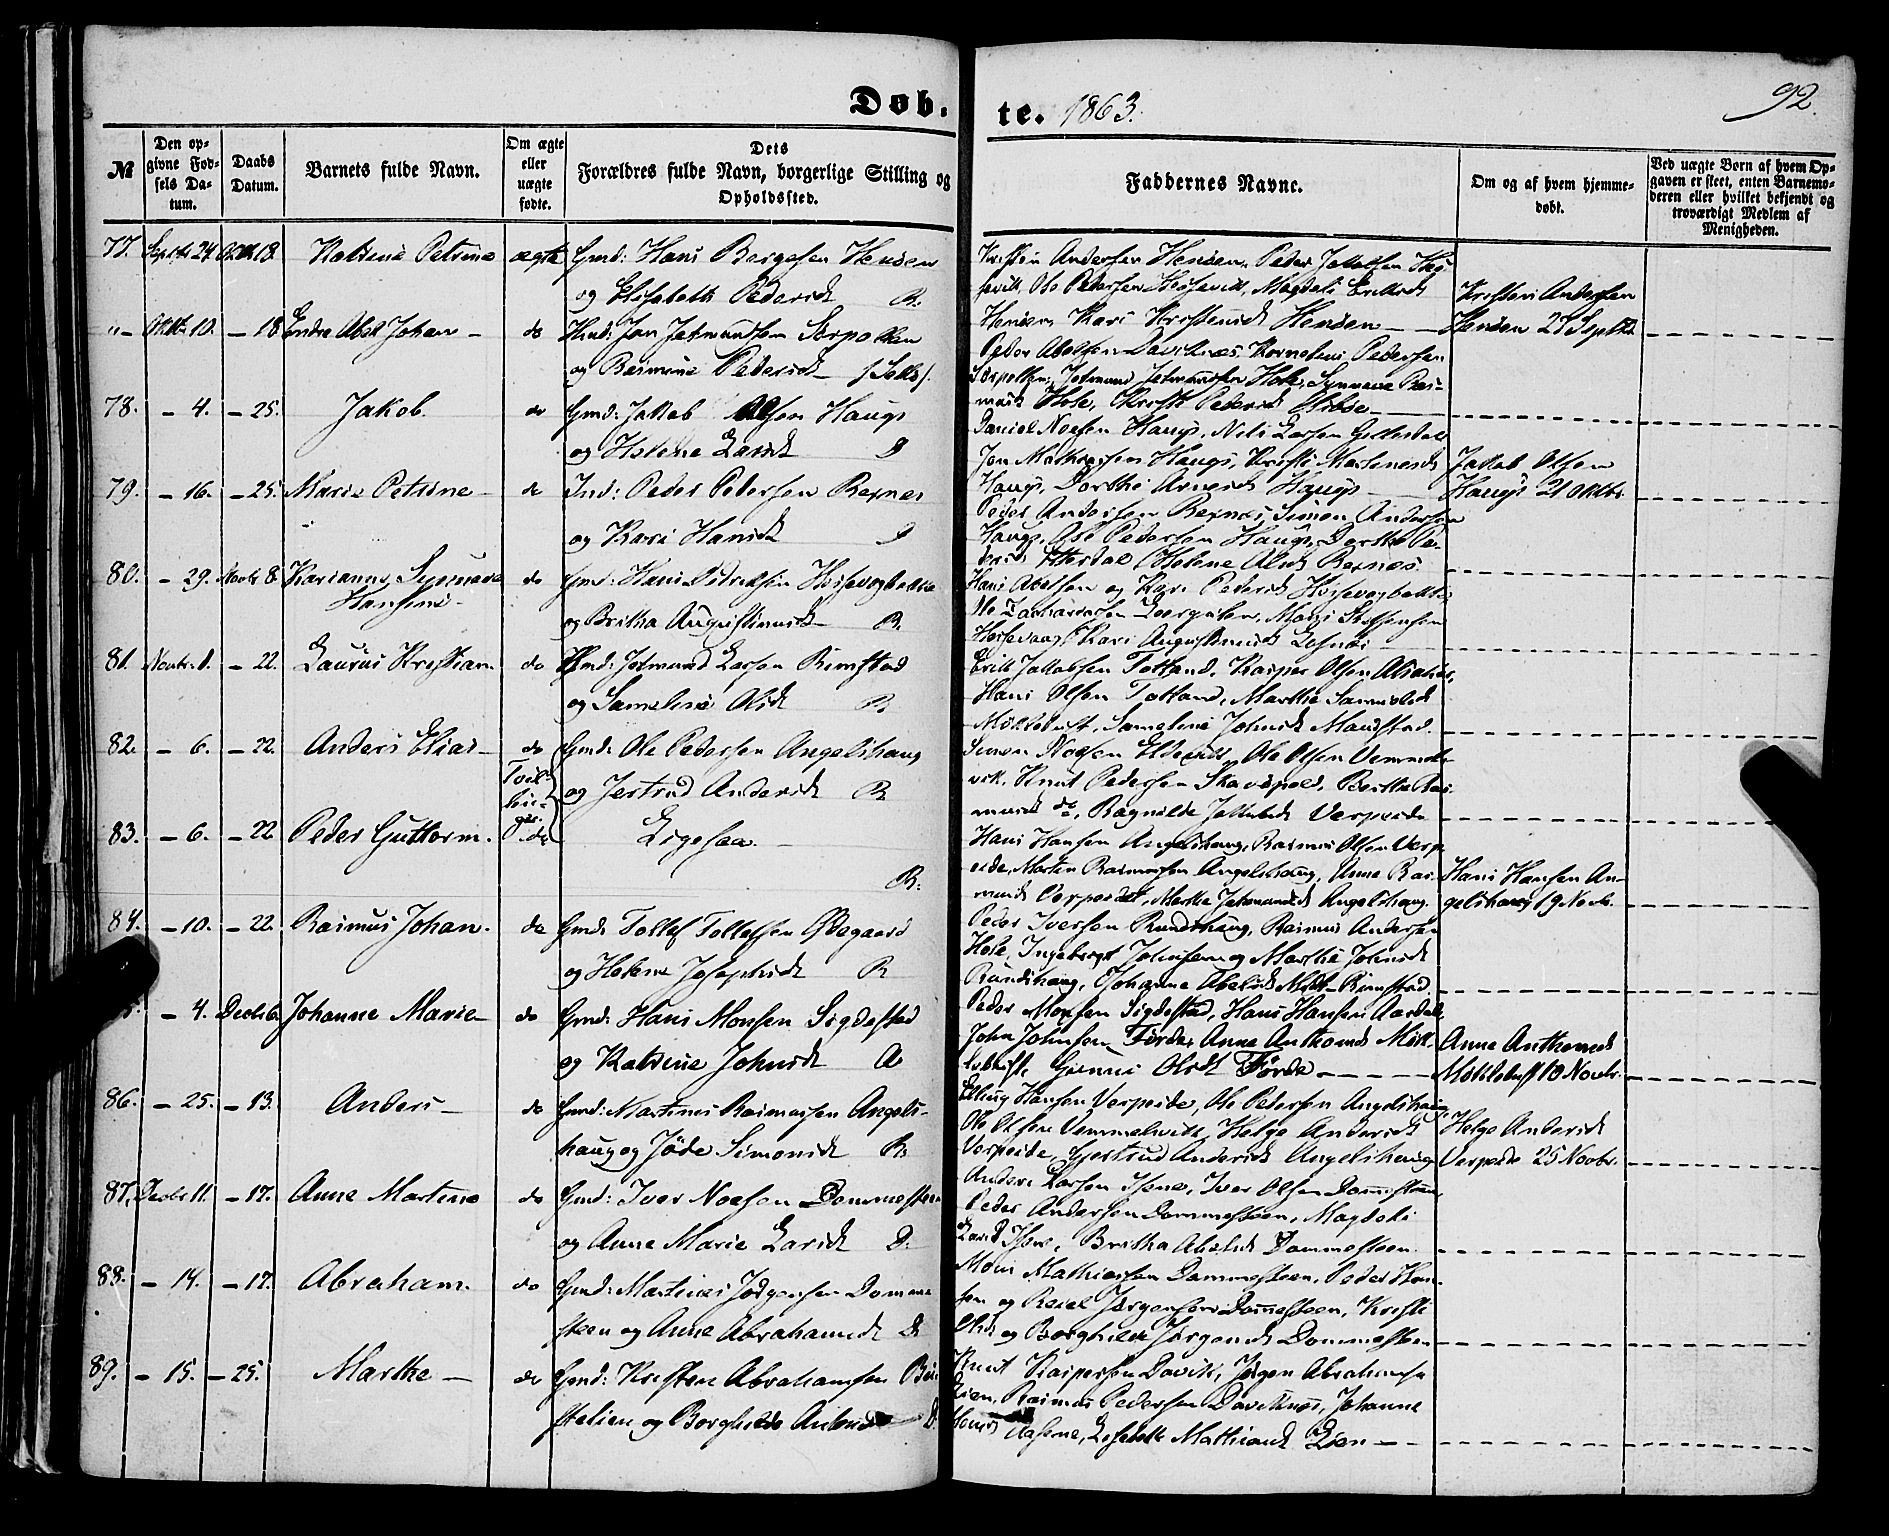 Døb.
te. 1863.
92
№
Den op-
givne Fød-
sels Da-
tum.
Daabs
Datum.
Barnets fulde Navn.
Om ægte
eller
uægte
fødte.
Dets
Forældres fulde Navn, borgerlige Stilling og
Opholdssted.
Faddernes Navne.
Om og af hvem hjemme-
døbt.
Ved uægte Børn af hvem Op-
gaven er skeet, enten Barnemo-
deren eller hvilket bekjendt og
troværdigt Medlem af
Menigheden.
77. Septbr 24 Oktbr 18. Katrine Petrine ægte Gmd: Hans Borgesen Hensen
og Elisabeth Pedersdt R.
Kristen Andersen Hensen, Peder Jakobsen
Ole Pedersen Magdeli Eriksdt
Hensen, Kari Kristensdt Hensen
Kristen Andersen
Hensen 27 Septbr.
" Oktbr 10. - 18 Endre Abel Johan - do Hmd: Jon Jetmundsen Sørpollen
og Rasmine Pedersdt (Selle).
Peder Abelsen Daviknæs, Kornelius Pedersen
Sørpollen, Jetmund Jetmundsen Hole, Synneve Ras-
musdt Hole, Pedersdt
78. - 4. - 25. Jakob do Gmd: Jakob Olsen Haugs
og Helene Larsdt
Daniel Noesen Haugs, Nils Larsen
Jon Mathiassen Haugs, Kristi Martinusdt
Haugs, Dorthe Arnesdt Haugs
Jakob Olsen
Haugs 21 Oktbr.
79. - 16. - 25. Marie Petrine - do Ind: Peder Pedersen Rexnes
og Kari Hansdt
Peder Andersen Rexnes, Simon Andersen
Haugs, Ole Pedersen Haugs, Dorthe Pe-
dersdt Helene Rexnes.
80. - 29. Novbr 8. Karianne Synneve
Hansine - do Gmd: Hans Didriksen
og Britha Augustinusdt R.
Hans Abelsen og Kari Pedersdt
Ole Zachariassen
Kari Augustinusdt
81. Novbr. 1. - 22. Laurus Kristian - do Hmd: Jetmund Larsen Rimstad
og Sameline Olsdt R
Erik Jakobsen Totland, Kasper Olsen
Hans Olsen Totland, Marthe Samuelsdt
Myklebust, Sameline Johnsdt Maurstad.
82. - 6. - 22. Anders Elias - do Gmd: Ole Pedersen Angelshaug
og Jertrud Andersdt R
Tvil-
lin-
ger.
Simon Noesen Ole Olsen Vemmel-
vik, Knut Pedersen Britha Ras-
musdt do, Ragnilde Jakobsdt Verpeide
83. - 6. - 22 Peder Guttorm. do Ligesaa. -
R.
Hans Hansen Angelshaug, Rasmus Olsen Verp-
eide, Morten Rasmussen Angelshaug, Anne Ras-
musdt Verpeide, Marthe Jetmundsdt Angelshaug.
Hans Hansen An-
gelshaug 19 Novb.
84. - 10. - 22. Rasmus Johan. do Gmd: Tollef Tollefsen Ødegaard
og Helene Josephsdt R
Peder Iversen Rundshaug, Rasmus Andersen
Hole, Ingebregt Johnsen og Marthe Johnsdt
Rundshaug, Johanne Abelsdt Midt-Rimstad.
- 4. Decbr 6. Johanne Marie - do Gmd: Hans Monsen Sigdestad
og Katrine Johnsdt A
Peder Monsen Sigdestad, Hans Hansen Aardal,
John Johnsen Förde, Anne Anthonsdt Mykl-
lebust, Gunni Olsdt Förde
Anne Anthonsdt
Myklebust 10 Novbr.
86. - 25. - 13. Anders - do Gmd: Martinus Rasmussen Angels-
haug og Jøde Simonsdt R.
Elling Hansen Verpeide, Ole Pedersen Angelshaug,
Ole Olsen Vemmelvik, Helge Andersdt
Verpeide, Gjertrud Andersdt Angelshaug
Helge Andersdt
Verpeide 25 Novbr.
87. Decbr 11. - 17. Anne Martine do Gmd: Iver Noesen Dommesteen
og Anne Marie Larsdt D.
Anders Larsen Isene, Iver Olsen Dommesteen,
Peder Andersen Dommesteen, Magdeli
Larsdt Isene, Britha Abelsdt Dommesteen.
88. - 14. - 17. Abraham. do Gmd: Martinus Jørgensen Domme-
steen og Anne Abrahamsdt D
Mons Mathiassen Dommesteen, Peder Han-
sen og Reiel Jørgensen Dommesteen, Kristi
Olsdt og Borghilde Jørgensdt Dommesteen
89. - 15. - 25. Marthe - do Gmd: Kristen Abrahamsen
og Borghilde D.
Knut Kaspersen Davik, Jørgen Abrahamsen
Lien, Rasmus Pedersen Daviknæs, Johanne
Monsdt Aasene, Lisbeth Mathiasdt Lien -